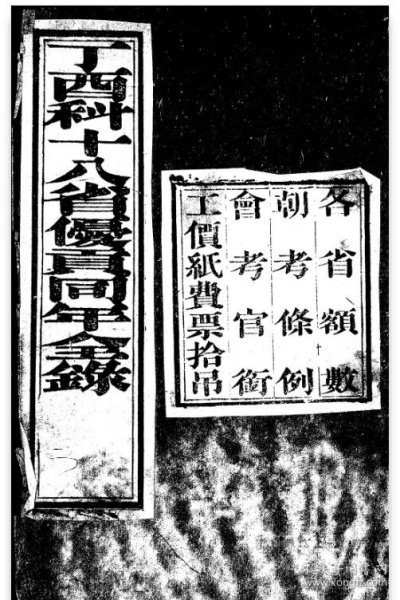 各省額數
朝考條例
會考官銜
工價紙費票拾吊
丁酉科十八省優貢同年全錄
www.kongfz.com